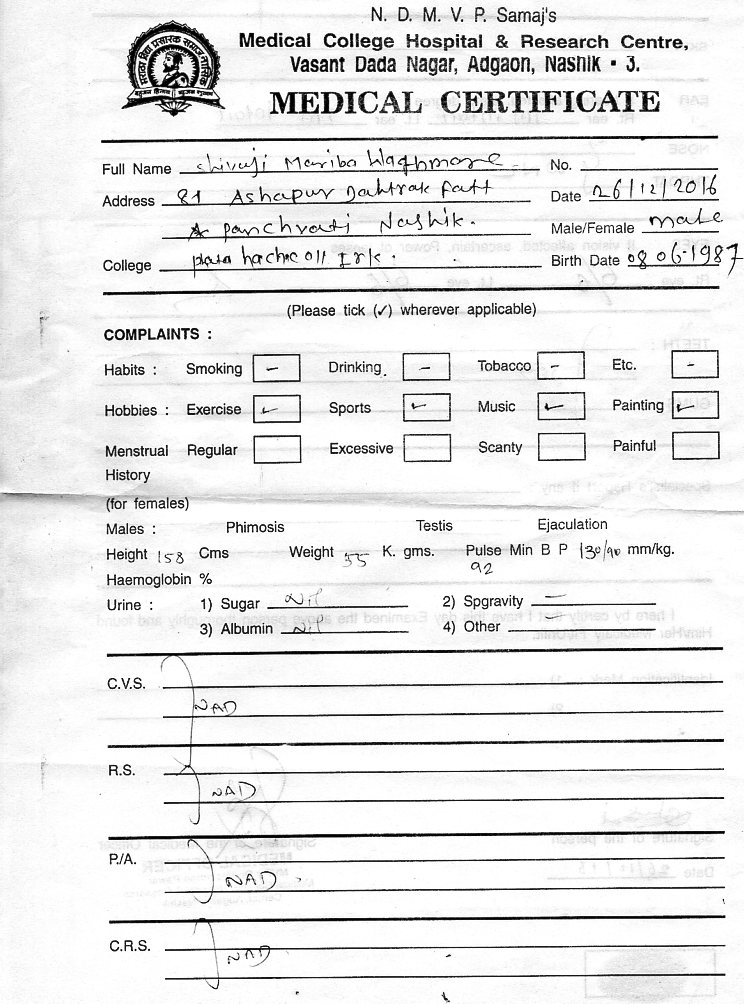 N. D. M. V. P. Samaj's
Medical College Hospital & Research Centre,
Vasant Dada Nagar, Adgaon, Nashik - 3.
MEDICAL CERTIFICATE
Full Name Shivaji Mariba Waghmare No.
Address 81 Ashapur Date 26/12/2016
panchvati Nashik. Male/Female male
College Birth Date 08 06-1987
(Please tick (✓) wherever applicable)
COMPLAINTS :
Habits : Smoking - Drinking - Tobacco - Etc. -
Hobbies : Exercise ✓ Sports ✓ Music ✓ Painting ✓
Menstrual Regular Excessive Scanty Painful
History
(for females)
Males : Phimosis Testis Ejaculation
Height 158 Cms Weight 55 K. gms. Pulse Min B P 130/90 mm/kg.
92
Haemoglobin %
Urine : 1) Sugar Nil 2) Spgravity -
3) Albumin Nil 4) Other -
C.V.S.
NAD
R.S.
NAD
P./A.
NAD
C.R.S.
NAD